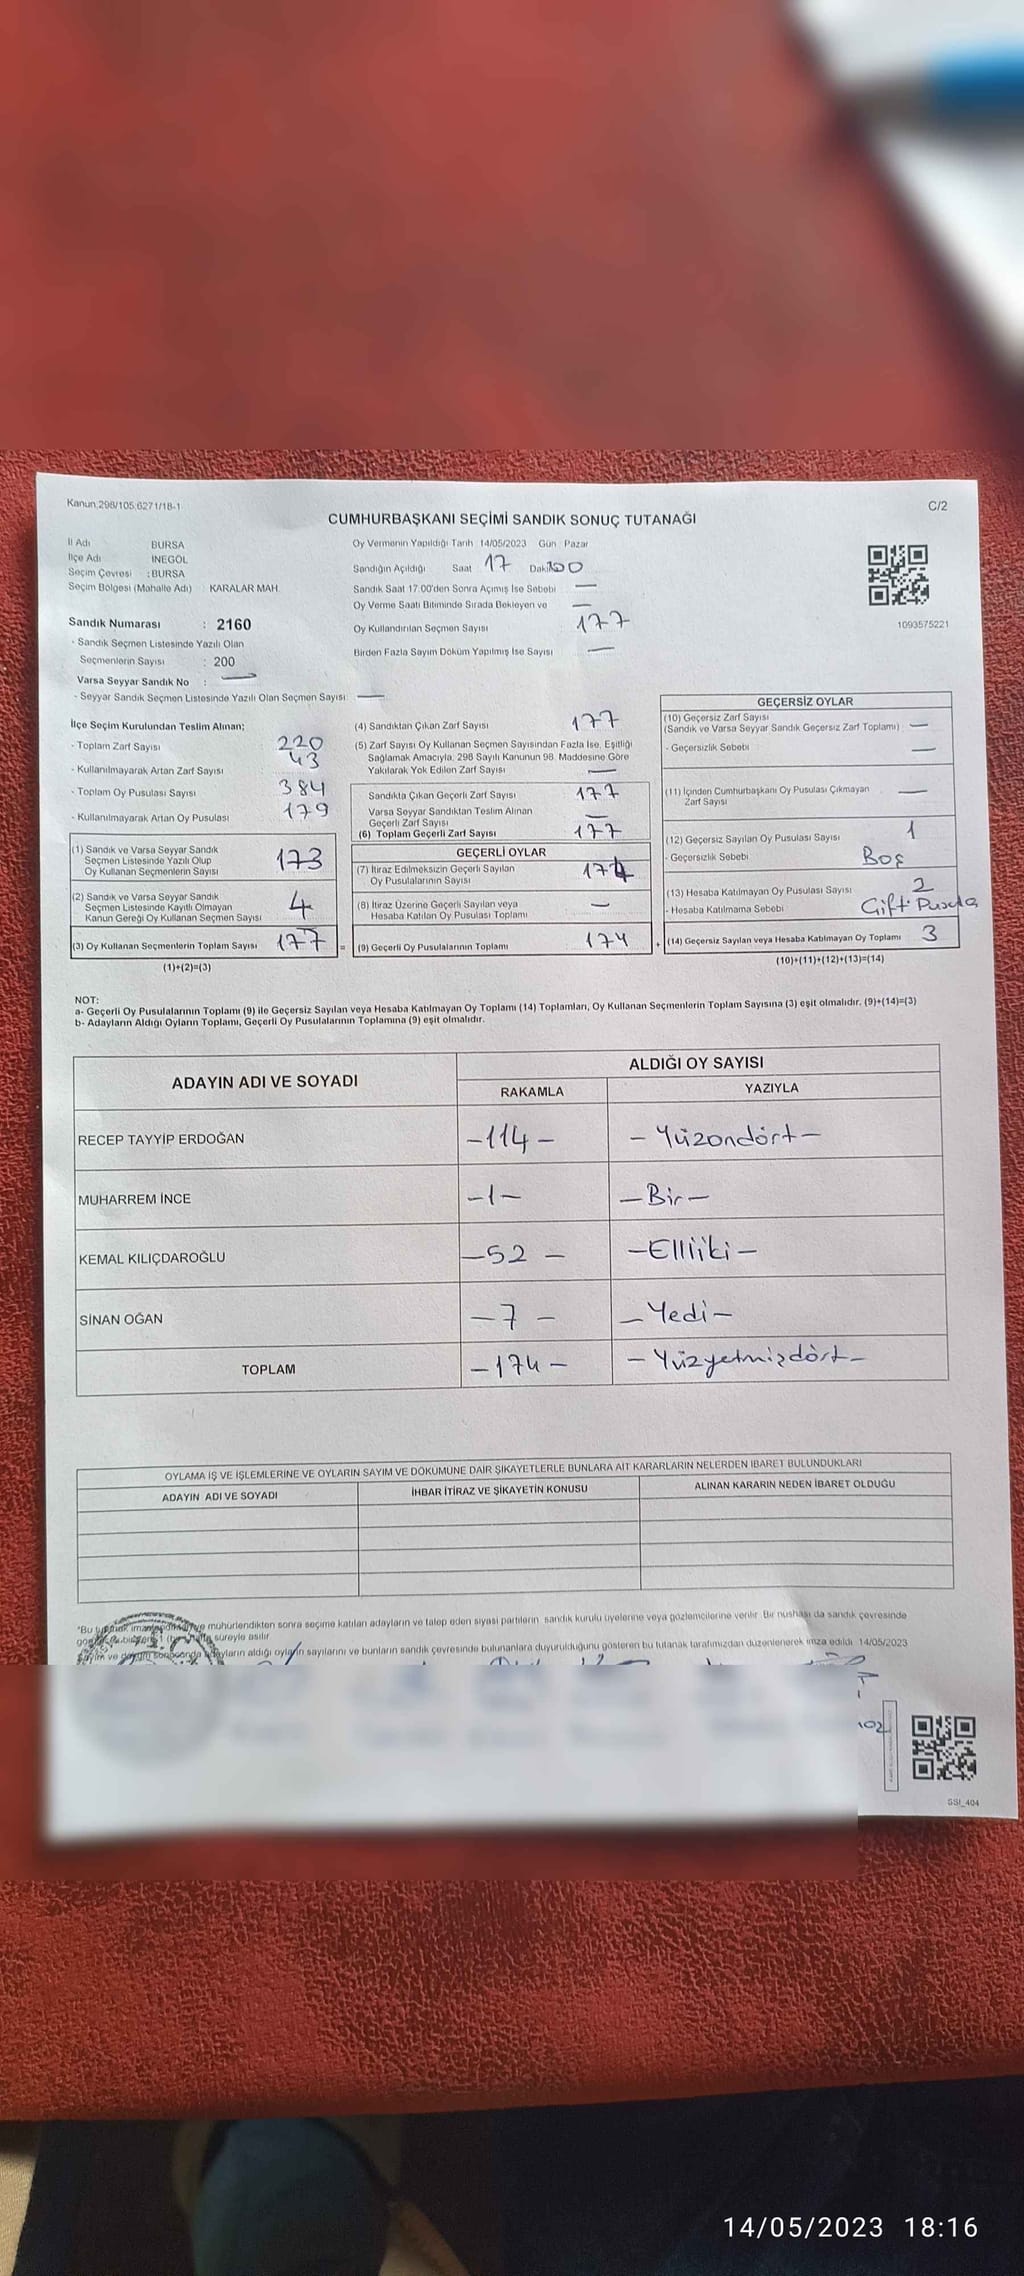 Kanun,298/105,6271/18-1
C/2
CUMHURBAŞKANI SEÇİMİ SANDIK SONUÇ TUTANAĞI
İl Adı BURSA
İlçe Adı İNEGÖL
Seçim Çevresi : BURSA
Seçim Bölgesi (Mahalle Adı) KARALAR MAH.
Oy Vermenin Yapıldığı Tarih 14/05/2023 Gün Pazar
Sandığın Açıldığı Saat 17 Daki 00
Sandık Saat 17.00'den Sonra Açımış İse Sebebi —
Oy Verme Saati Bitiminde Sırada Bekleyen ve —
Oy Kullandırılan Seçmen Sayısı 177
Birden Fazla Sayım Döküm Yapılmış İse Sayısı —
1093575221
Sandık Numarası : 2160
- Sandık Seçmen Listesinde Yazılı Olan
Seçmenlerin Sayısı : 200
Varsa Seyyar Sandık No : —
- Seyyar Sandık Seçmen Listesinde Yazılı Olan Seçmen Sayısı —
İlçe Seçim Kurulundan Teslim Alınan;
- Toplam Zarf Sayısı 220
- Kullanılmayarak Artan Zarf Sayısı 43
- Toplam Oy Pusulası Sayısı 384
- Kullanılmayarak Artan Oy Pusulası 179
(1) Sandık ve Varsa Seyyar Sandık
Seçmen Listesinde Yazılı Olup
Oy Kullanan Seçmenlerin Sayısı 173
(2) Sandık ve Varsa Seyyar Sandık
Seçmen Listesinde Kayıtlı Olmayan
Kanun Gereği Oy Kullanan Seçmen Sayısı 4
(3) Oy Kullanan Seçmenlerin Toplam Sayısı 177 =
(1)+(2)=(3)
(4) Sandıktan Çıkan Zarf Sayısı 177
(5) Zarf Sayısı Oy Kullanan Seçmen Sayısından Fazla İse, Eşitliği
Sağlamak Amacıyla, 298 Sayılı Kanunun 98. Maddesine Göre
Yakılarak Yok Edilen Zarf Sayısı —
Sandıkta Çıkan Geçerli Zarf Sayısı 177
Varsa Seyyar Sandıktan Teslim Alınan
Geçerli Zarf Sayısı —
(6) Toplam Geçerli Zarf Sayısı 177
GEÇERLİ OYLAR
(7) İtiraz Edilmeksizin Geçerli Sayılan
Oy Pusulalarının Sayısı 174
(8) İtiraz Üzerine Geçerli Sayılan veya
Hesaba Katılan Oy Pusulası Toplamı —
(9) Geçerli Oy Pusulalarının Toplamı 174 +
GEÇERSİZ OYLAR
(10) Geçersiz Zarf Sayısı
(Sandık ve Varsa Seyyar Sandık Geçersiz Zarf Toplamı) —
- Geçersizlik Sebebi —
(11) İçinden Cumhurbaşkanı Oy Pusulası Çıkmayan
Zarf Sayısı —
(12) Geçersiz Sayılan Oy Pusulası Sayısı 1
- Geçersizlik Sebebi Boş
(13) Hesaba Katılmayan Oy Pusulası Sayısı 2
- Hesaba Katılmama Sebebi Çift Pusula
(14) Geçersiz Sayılan veya Hesaba Katılmayan Oy Toplamı 3
(10)+(11)+(12)+(13)=(14)
NOT:
a- Geçerli Oy Pusulalarının Toplamı (9) ile Geçersiz Sayılan veya Hesaba Katılmayan Oy Toplamı (14) Toplamları, Oy Kullanan Seçmenlerin Toplam Sayısına (3) eşit olmalıdır. (9)+(14)=(3)
b- Adayların Aldığı Oyların Toplamı, Geçerli Oy Pusulalarının Toplamına (9) eşit olmalıdır.
ADAYIN ADI VE SOYADI ALDIĞI OY SAYISI
RAKAMLA YAZIYLA
RECEP TAYYİP ERDOĞAN -114- -Yüzondört-
MUHARREM İNCE -1- -Bir-
KEMAL KILIÇDAROĞLU -52- -Elliiki-
SİNAN OĞAN -7- -Yedi-
TOPLAM -174- -Yüzyetmişdört-
OYLAMA İŞ VE İŞLEMLERİNE VE OYLARIN SAYIM VE DÖKÜMÜNE DAİR ŞİKAYETLERLE BUNLARA AİT KARARLARIN NELERDEN İBARET BULUNDUKLARI
ADAYIN ADI VE SOYADI İHBAR İTİRAZ VE ŞİKAYETİN KONUSU ALINAN KARARIN NEDEN İBARET OLDUĞU
"Bu mühürlendikten sonra seçime katılan adayların ve talep eden siyasi partilerin sandık kurulu üyelerine veya gözlemcilerine verilir. Bir nüshası da sandık çevresinde
süreyle asılır
Sayım ve aldığı oyların sayılarını ve bunların sandık çevresinde bulunanlara duyurulduğunu gösteren bu tutanak tarafımızdan düzenlenerek imza edildi. 14/05/2023
SSI_404
14/05/2023 18:16